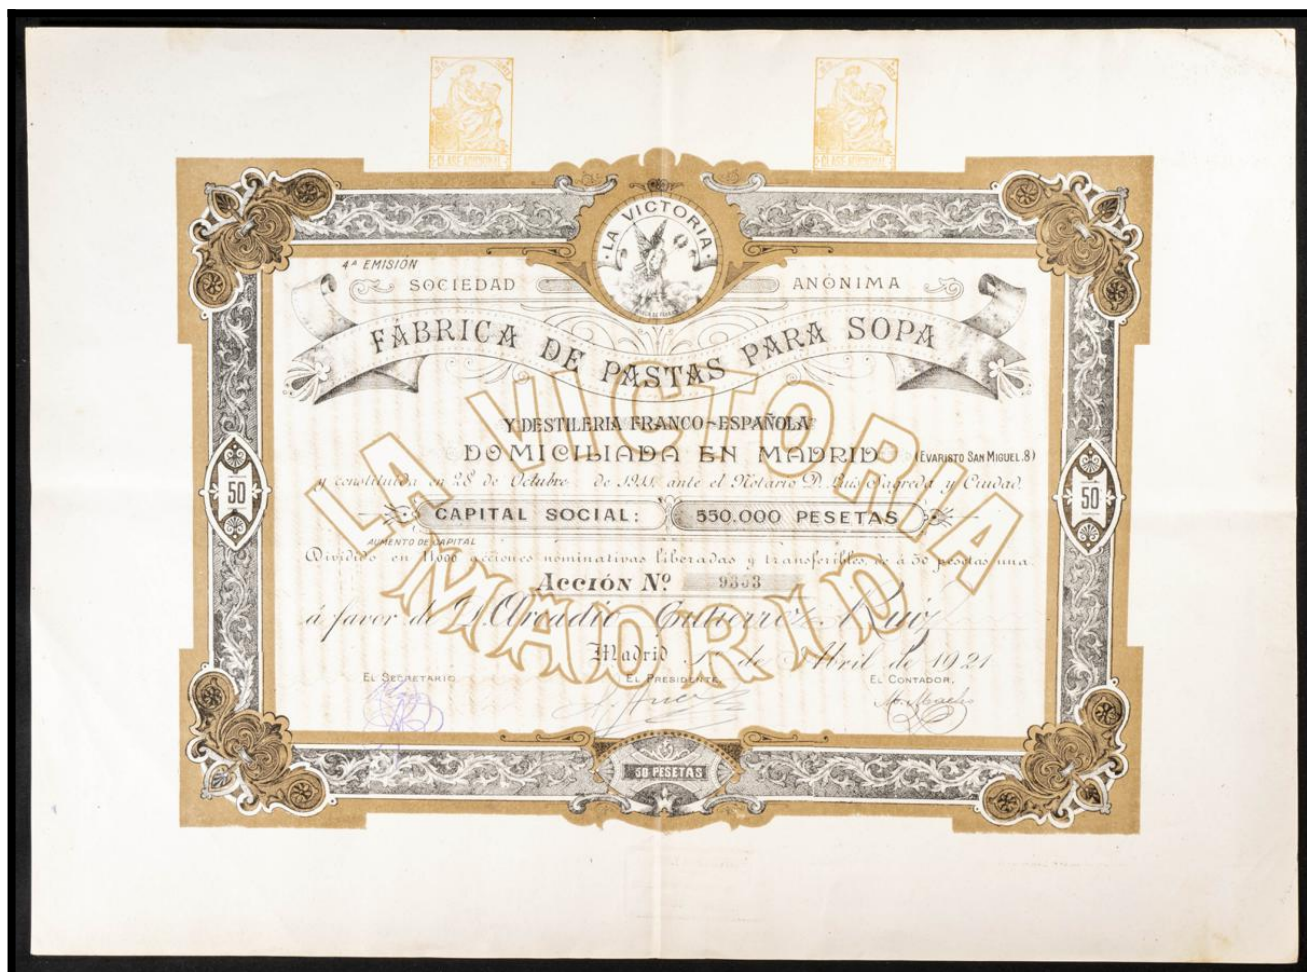 CLASE ADICIONAL
CLASE ADICIONAL
LA VICTORIA
4ª EMISIÓN
SOCIEDAD ANÓNIMA
FÁBRICA DE PASTAS PARA SOPA
Y DESTILERIA FRANCO-ESPAÑOLA
DOMICILIADA EN MADRID (EVARISTO SAN MIGUEL.8)
y constituida en 28 de Octubre de 1911 ante el Notario D. Luis Sagreda y Ciudad.
50
50
CAPITAL SOCIAL: 550.000 PESETAS
AUMENTO DE CAPITAL
Dividido en 11000 acciones nominativas liberadas y transferibles, de a 50 pesetas una.
ACCIÓN Nº
á favor de D. Arcadio Gutierrez Ruiz
Madrid 1º de Abril de 1921
EL SECRETARIO EL PRESIDENTE, EL CONTADOR,
LA VICTORIA
MADRID
50 PESETAS